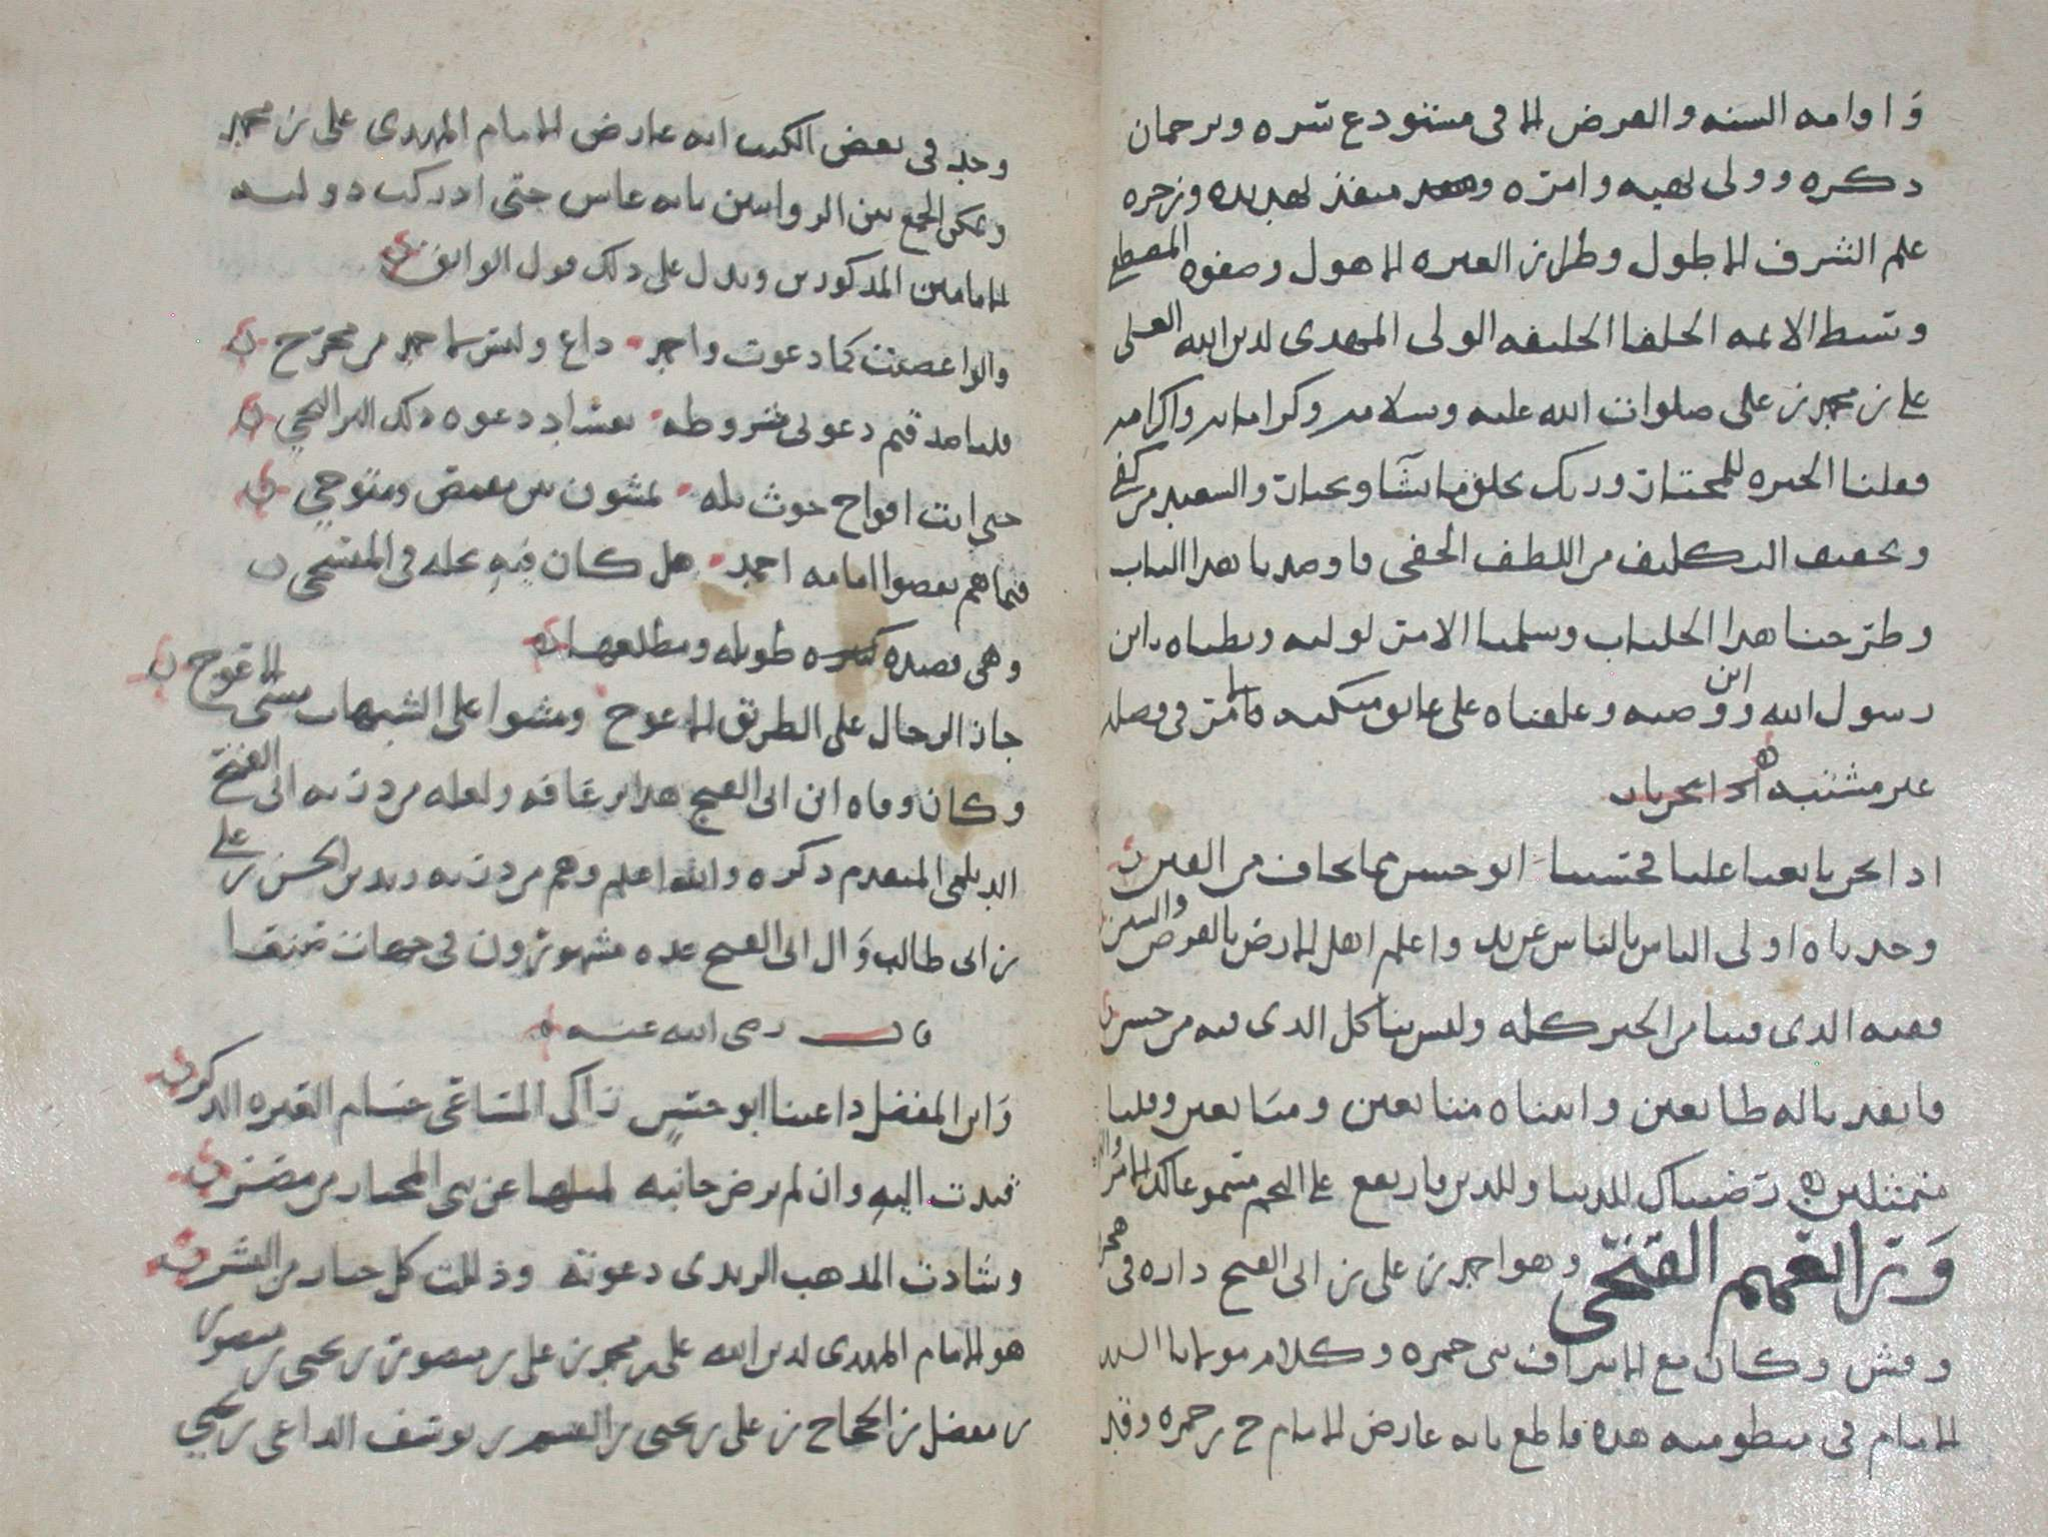 واوامه السنه والفرض الا في مستودع سره وترجمان
ذكره وولي نهيه وامره ومنفذ تهديده وزجره
علم الشرف الاطول وطراز العتره الاهول وصفوه المصطفى
وسط الائمه الخلفا الخليفه الولي المهدي لدين الله العلي
علي بن محمد بن علي صلوات الله عليه وسلامه وكراماته واكرامه
فقلنا الخيره للمختار وربك يخلق ما يشا ويختار والسعيد من كفي
وتخفيف التكليف من اللطف الخفي فاوصدنا هذا الباب
وطرحنا هذا الجلباب وسلمنا الامر لوليه ونطناه بابن
رسول الله وابن وصيه وعلقناه على عاتق منكبيه فامر في فصله
غير مشتبه
اذا نحن بايعنا عليا فحسبنا ابو حسن مما نخاف من الفتن
وجدناه اولى الناس بالناس واعلم اهل الارض بالفرض والسنن
ففيه الذي فينا من الخير كله وليس بنا كل الذي فيه من حسن
فانقدنا له طائعين واتيناه متابعين ومشايعين وقلنا
متمثلين رضيناك للدنيا وللدين فارتفع على النجم
وترا القمم الفتحي وهو احمد بن علي بن ابي الفتح داره في
وقش وكان مع الاشراف بني حمزه وكلام مولانا السيد
الامام في منظومته هذه قاطع بانه عارض الامام ح بن حمزه وقد
وجد في بعض الكتب انه عارض الامام المهدي علي بن محمد
ويمكن الجمع بين الروايتين بانه عاش حتى ادركت دولته
الامامين المذكورين ويدل على ذلك قول الواثق
والوا عصيت كما دعوت واحمد داع وليس باحمد من مخرج
فلنا صدقتم دعوتي مشروطه بفساد دعوه ذلك البر النجي
حتى اتت افواج حوث بله يمشون بين معمم ومتوج
فتفاهم بعصوا امامه احمد هل كان فيه عله في المنهج
وهي قصيده طويله ومطلعها
جاز الرجال على الطريق الاعوج ومشوا على الشبهات مشي الاعوج
وكان وفاه ابن ابي الفتح هذا برغافه ولعله من ذريه ابي الفتح
الديلمي المتقدم ذكره والله اعلم وهم من ذريه زيد بن الحسن بن علي
بن ابي طالب وال ابي الفتح عده مشهورون في جهات صنعا
قال رضي الله عنه
وابن المفضل داعينا ابو حسن زاكي المساعي ختام العتره الذكر
قيدت اليه وان لم يرض جانبه لمثلها عن بني المختار من مضر
وشادت المذهب الزيدي دعوته وذللت كل جبار من البشر
هو الامام المهدي لدين الله علي بن محمد بن علي بن منصور بن يحيى بن منصور
بن مفضل بن الحجاج بن علي بن يحيى بن القسم بن يوسف الداعي بن يحيى